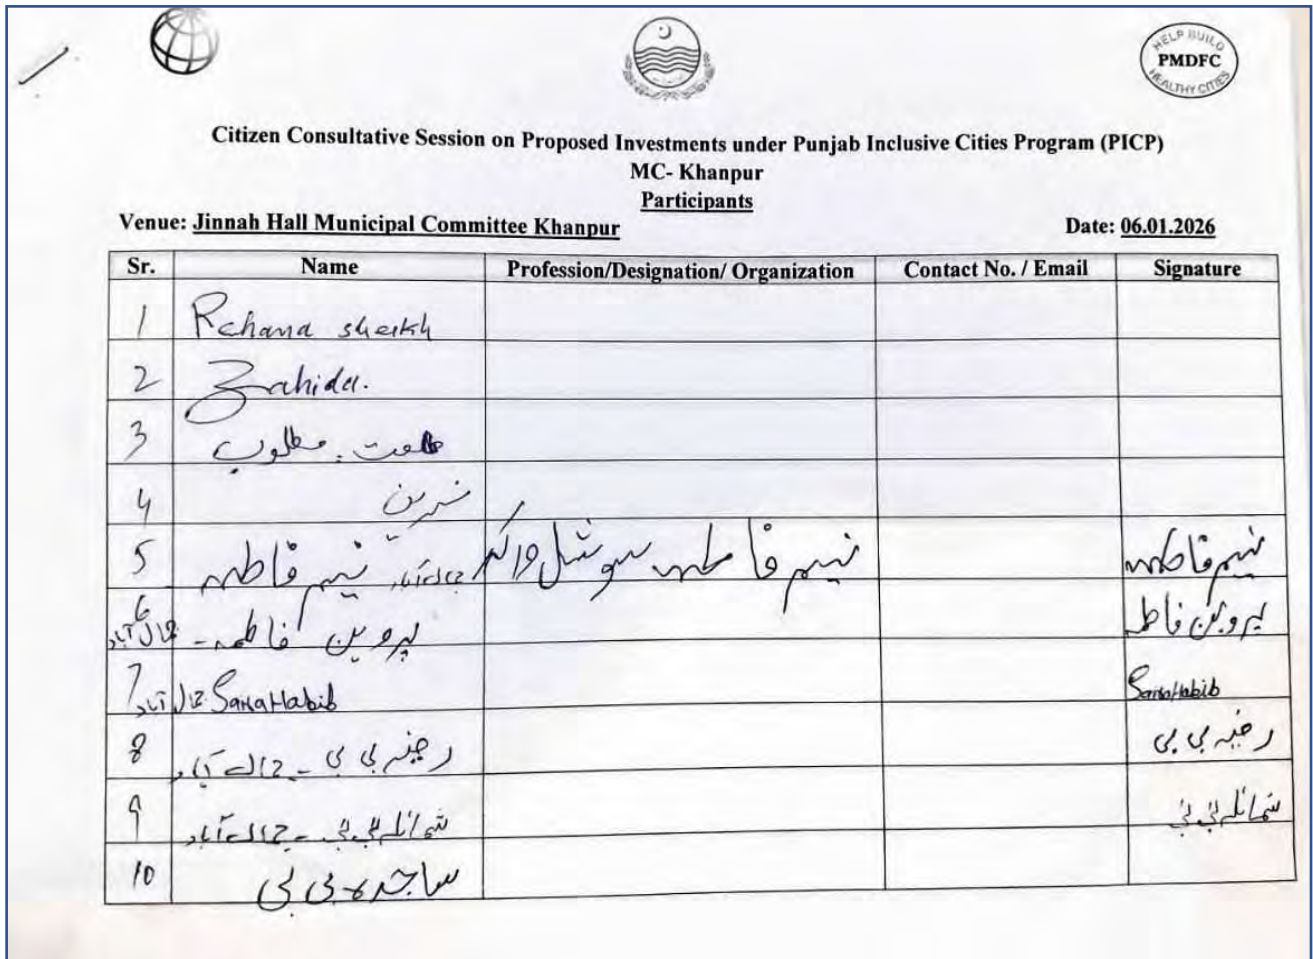 HELP BUILD
PMDFC
HEALTHY CITIES
Citizen Consultative Session on Proposed Investments under Punjab Inclusive Cities Program (PICP)
MC- Khanpur
Participants
Venue: Jinnah Hall Municipal Committee Khanpur Date: 06.01.2026
Sr. Name Profession/Designation/ Organization Contact No. / Email Signature
1 Rehana sheikh
2 Zahida.
3 طلعت . مطلوب
4 نسرین
5 نسیم فاطمہ جمال آباد نسیم فاطمہ سوشل ورکر نسیم فاطمہ
6 پروین فاطمہ - جمال آباد پروین فاطمہ
7 جمال آباد Sana Habib Sana Habib
8 رضیہ بی بی - جمال آباد رضیہ بی بی
9 شمائلہ بی بی - جمال آباد شمائلہ بی بی
10 ساجدہ بی بی